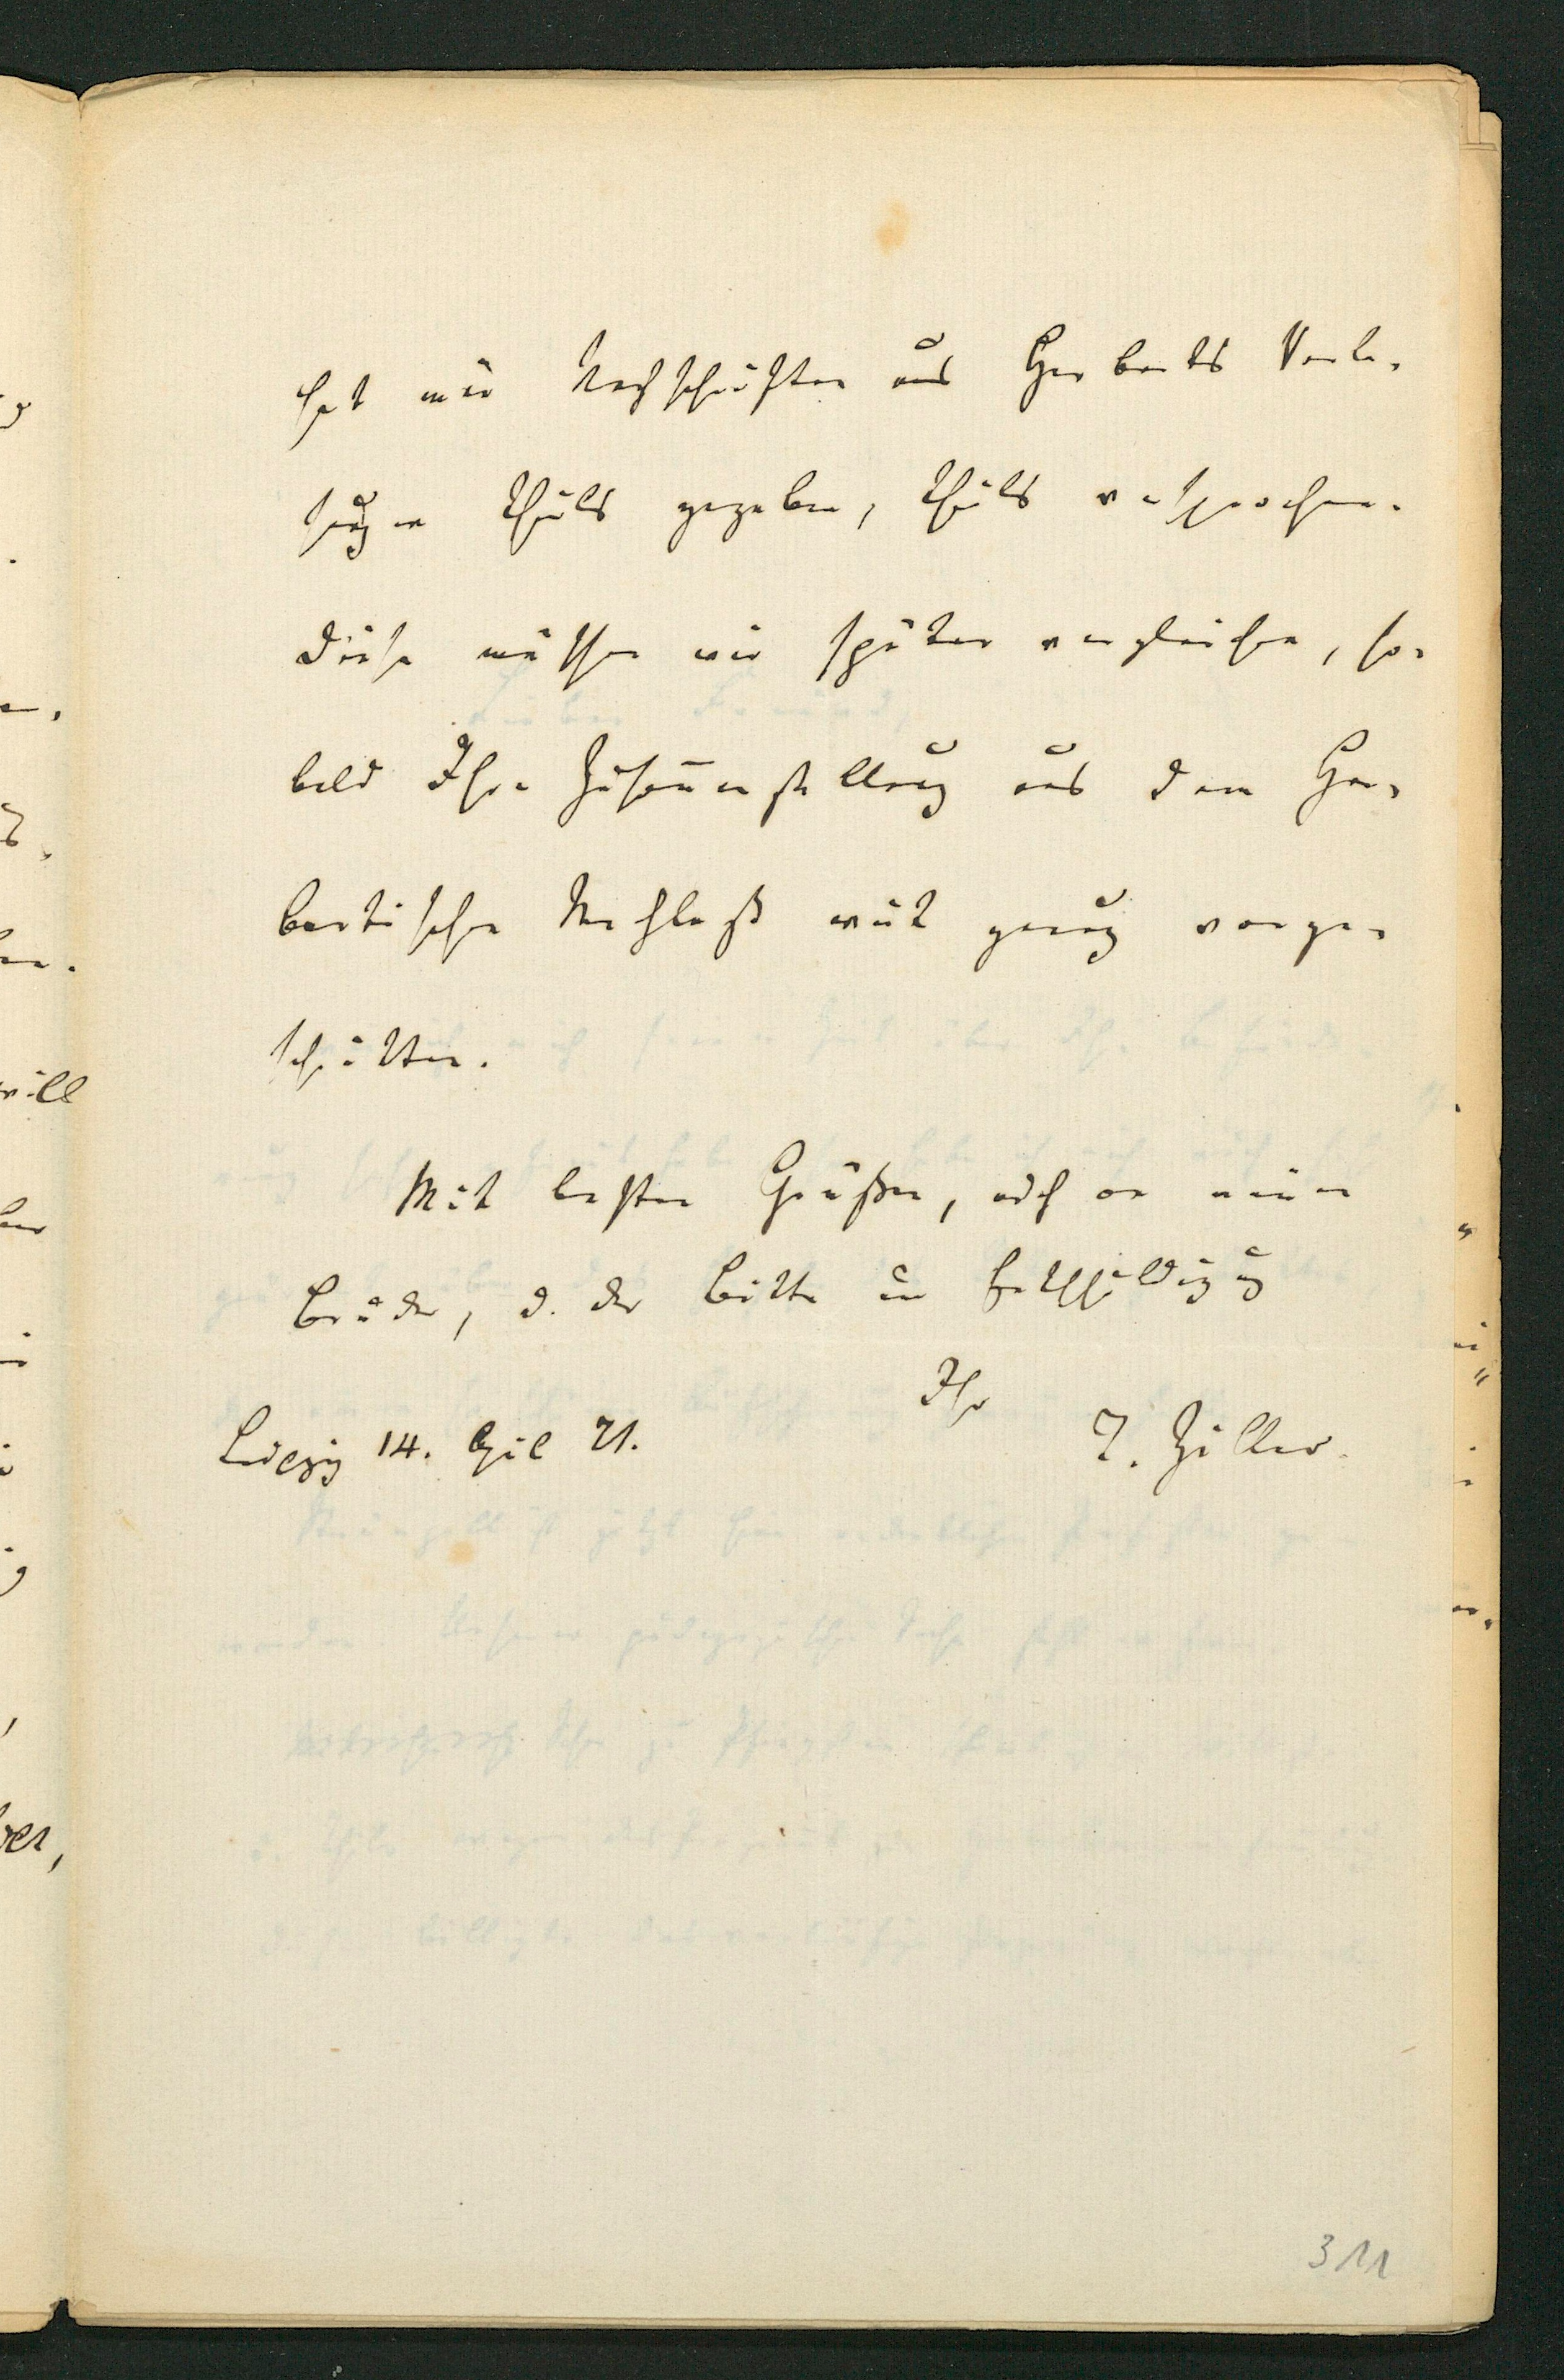 hat mir Nachschriften aus Herbarts Vorle-
sungen theils gegeben, theils versprochen.
Diese müssen wir später vergleichen, so-
bald Ihre Zusam̅enstellung aus dem Her-
bartischen Nachlaß weit genug vorge-
schritten.
Mit besten Grüßen, auch an meinen
Bruder, u. der Bitte um Entschuldigung
Ihr
Leipzig 14. April 71.
T. Ziller.
311